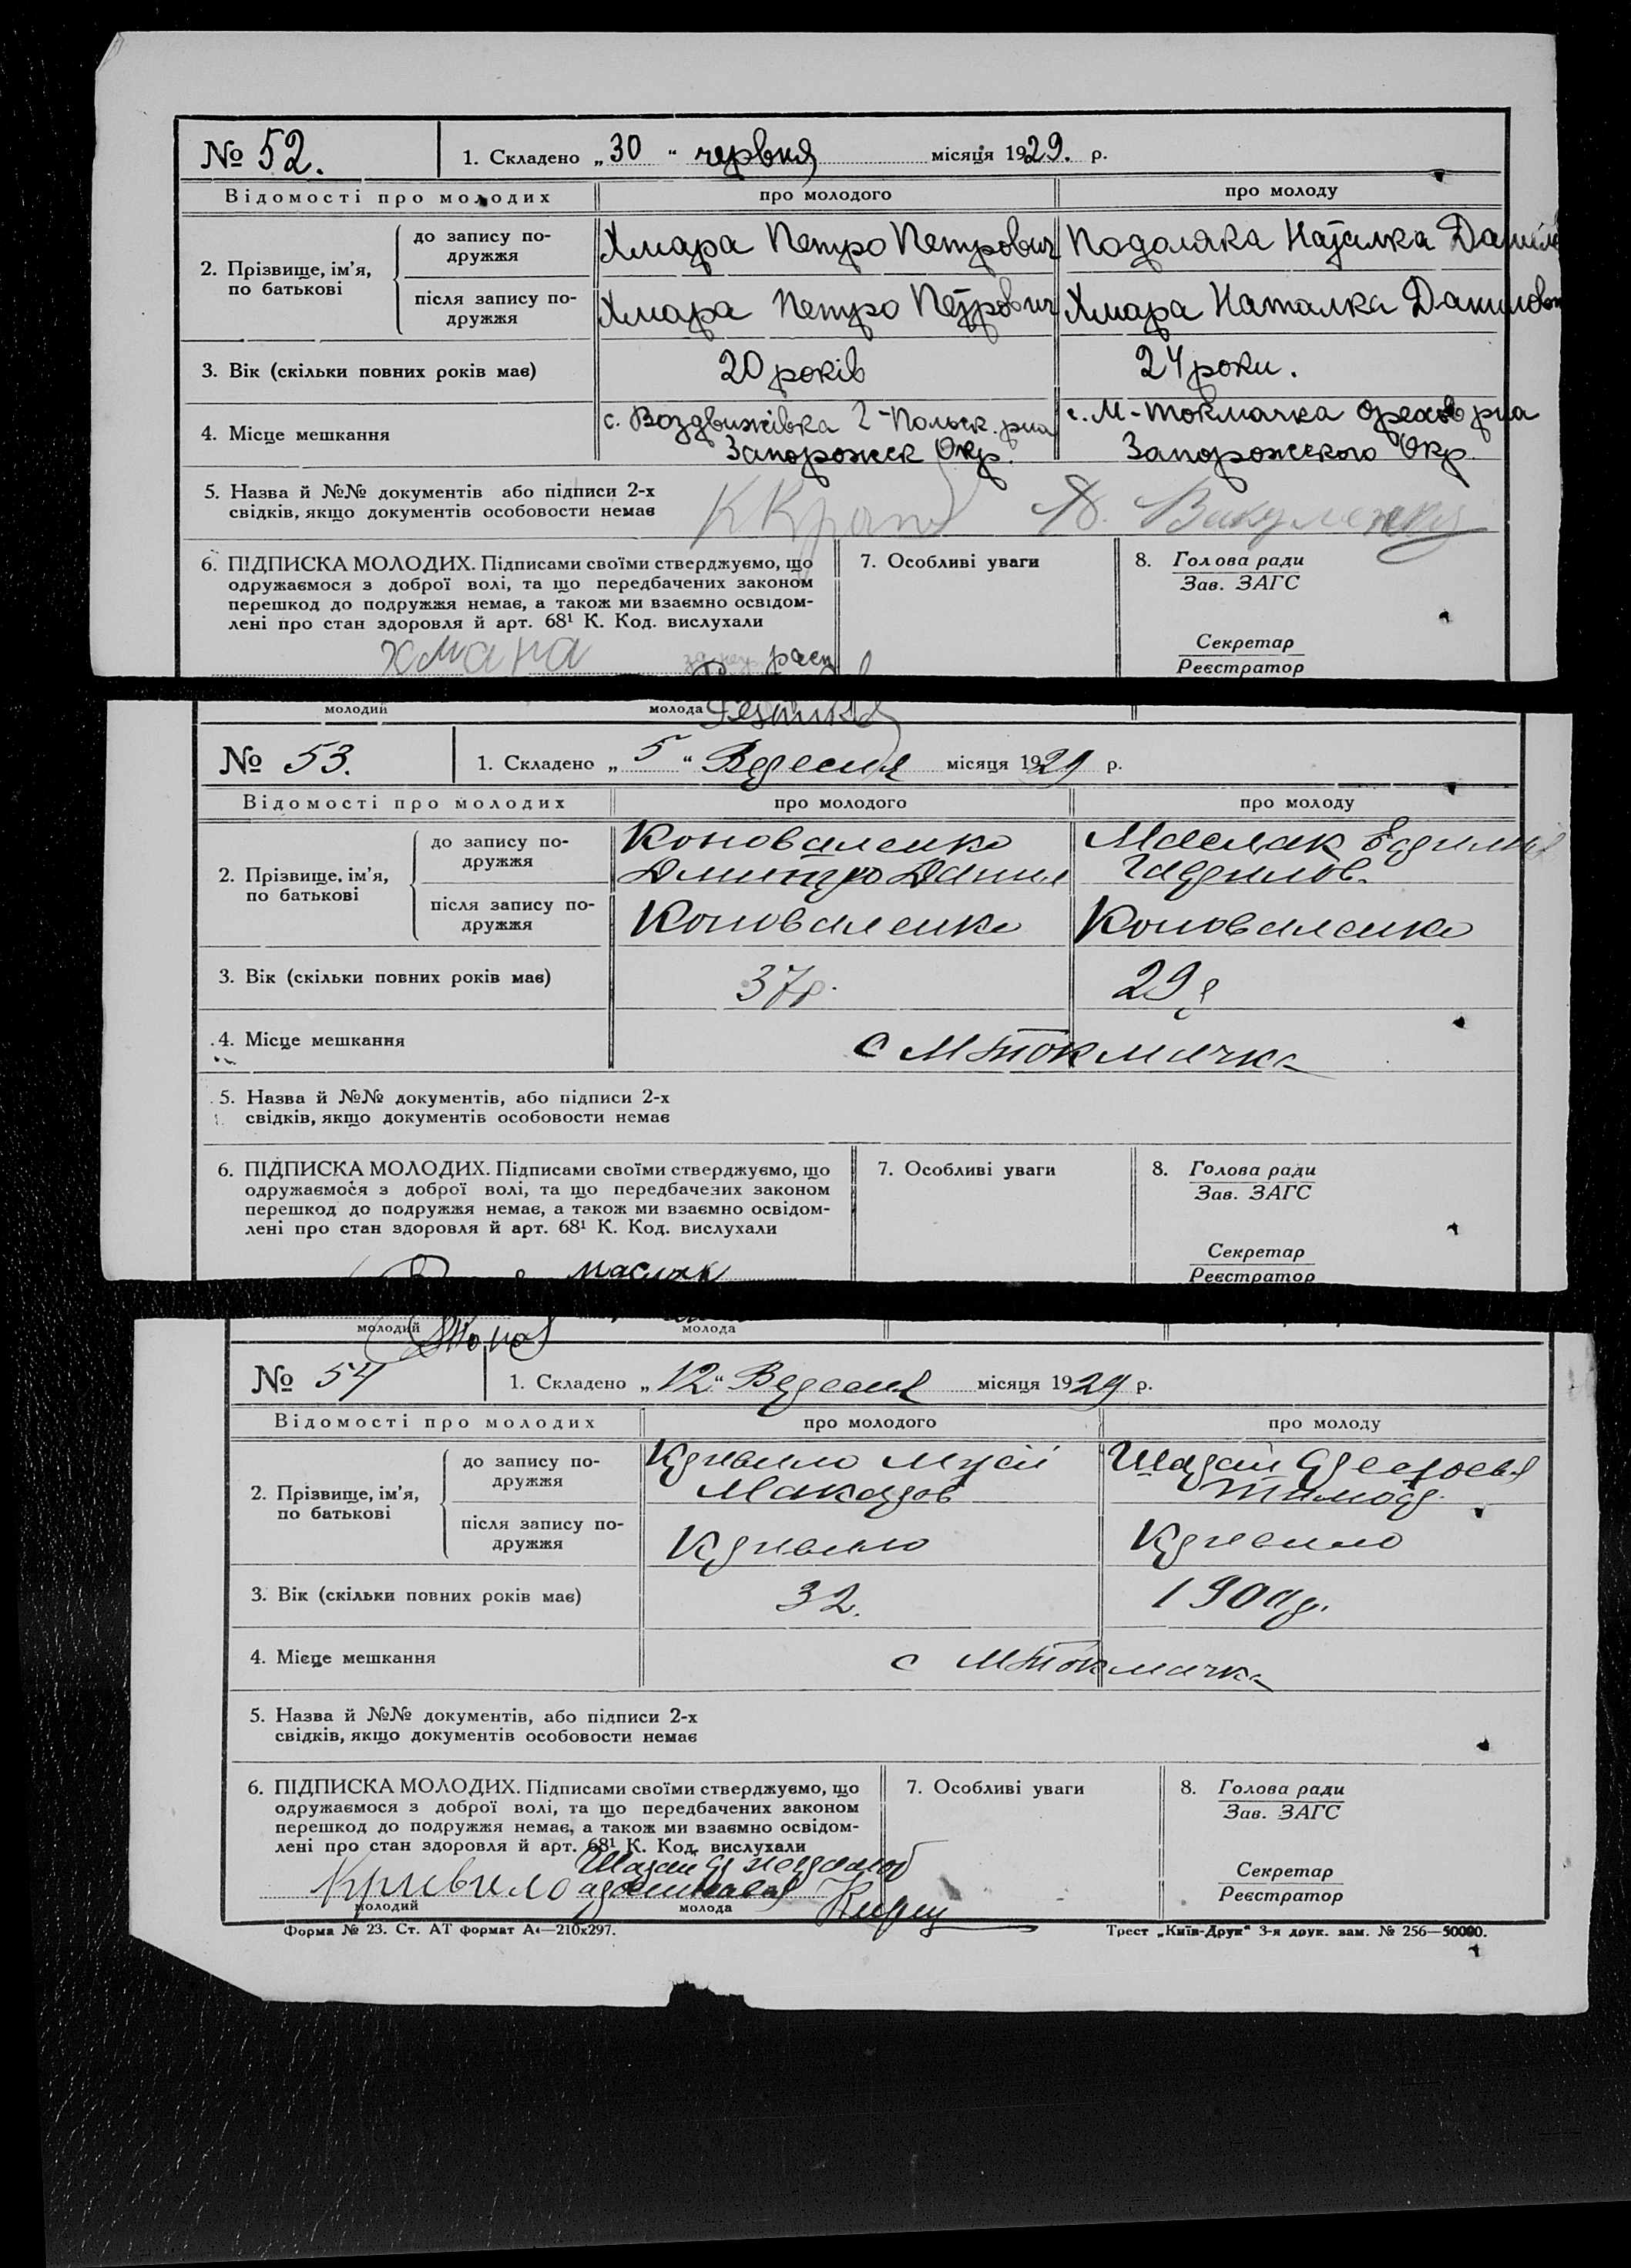 № 52. 1. Складено „30“ червня місяця 1929. р.
Відомості про молодих про молодого про молоду
2. Прізвище, ім’я, по батькові
до запису подружжя Хмара Петро Петрович Подоляка Наталка Данило
після запису подружжя Хмара Петро Петрович Хмара Наталка Данилов
3. Вік (скільки повних років має) 20 років 24 роки.
4. Місце мешкання с. Воздвижівка Г-Польск. рна с. М-Токмачка Орехов рна
Запорожск Окр. Запорожского Окр.
5. Назва й №№ документів або підписи 2-х
свідків, якщо документів особовости немає
Вакуленко
6. ПІДПИСКА МОЛОДИХ. Підписами своїми стверджуємо, що
одружаємося з доброї волі, та що передбачених законом
перешкод до подружжя немає, а також ми взаємно освідом-
лені про стан здоровля й арт. 68¹ К. Код. вислухали
7. Особливі уваги
8. Голова ради
Зав. ЗАГС
Секретар
Реєстратор
Хмара
молодий молода
№ 53. 1. Складено „5“ Вересня місяця 1929 р.
Відомості про молодих про молодого про молоду
2. Прізвище, ім’я, по батькові
до запису подружжя Коноваленко Маслак
Дмитро Данил Гаврилов.
після запису подружжя Коноваленко Коноваленко
3. Вік (скільки повних років має) 37р. 29р
4. Місце мешкання с МТокмачка
5. Назва й №№ документів, або підписи 2-х
свідків, якщо документів особовости немає
6. ПІДПИСКА МОЛОДИХ. Підписами своїми стверджуємо, що
одружаємося з доброї волі, та що передбачених законом
перешкод до подружжя немає, а також ми взаємно освідом-
лені про стан здоровля й арт. 68¹ К. Код. вислухали
7. Особливі уваги
8. Голова ради
Зав. ЗАГС
Секретар
Реєстратор
Маслак
молодий молода
№ 54 1. Складено „12“ Вересня місяця 1929 р.
Відомості про молодих про молодого про молоду
2. Прізвище, ім’я, по батькові
до запису подружжя Кривило Мусій
Макаров Тимоф.
після запису подружжя Кривило Кривило
3. Вік (скільки повних років має) 32.
4. Місце мешкання с МТокмачка
5. Назва й №№ документів, або підписи 2-х
свідків, якщо документів особовости немає
6. ПІДПИСКА МОЛОДИХ. Підписами своїми стверджуємо, що
одружаємося з доброї волі, та що передбачених законом
перешкод до подружжя немає, а також ми взаємно освідом-
лені про стан здоровля й арт. 68¹ К. Код. вислухали
7. Особливі уваги
8. Голова ради
Зав. ЗАГС
Секретар
Реєстратор
Кривило
молодий молода
Форма № 23. Ст. АТ формат А4—210х297. Трест „Київ-Друк“ 3-я друк. зам. № 256—50000.